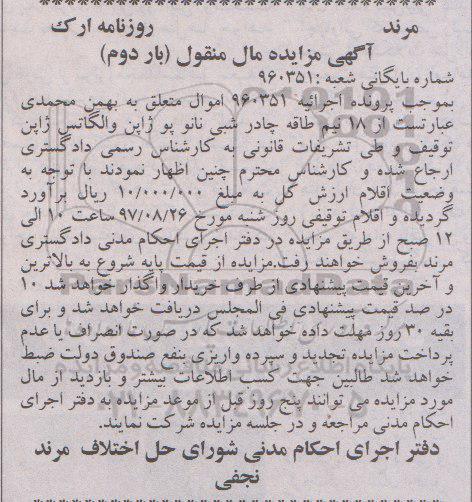 مرند روزنامه ارک
آگهی مزایده مال منقول (بار دوم)
شماره بایگانی شعبه :۹۶۰۳۵۱
بموجب پرونده اجرائیه ۹۶۰۳۵۱ اموال متعلق به بهمن محمدی
عبارتست از ۱۸ نیم طاقه چادر شبی نانو پو ژاپن والگاتس ژاپن
توقیف و طی تشریفات قانونی به کارشناس رسمی دادگستری
ارجاع شده و کارشناس محترم چنین اظهار نمودند با توجه به
وضعیت اقلام ارزش کل به مبلغ ۱۰/۰۰۰/۰۰۰ ریال برآورد
گردیده و اقلام توقیفی روز شنبه مورخ ۹۷/۰۸/۲۶ ساعت ۱۰ الی
۱۲ صبح از طریق مزایده در دفتر اجرای احکام مدنی دادگستری
مرند بفروش خواهند رفت.مزایده از قیمت پایه شروع به بالاترین
و آخرین قیمت پیشنهادی از طرف خریدار واگذار خواهد شد ۱۰
در صد قیمت پیشنهادی فی المجلس دریافت خواهد شد و برای
بقیه ۳۰ روز مهلت داده خواهد شد که در صورت انصراف یا عدم
پرداخت مزایده تجدید و سپرده واریزی بنفع صندوق دولت ضبط
خواهد شد طالبین جهت کسب اطلاعات بیشتر و بازدید از مال
مورد مزایده می توانند پنج روز قبل از موعد مزایده به دفتر اجرای
احکام مدنی مراجعه و در جلسه مزایده شرکت نمایند.
دفتر اجرای احکام مدنی شورای حل اختلاف مرند
نجفی